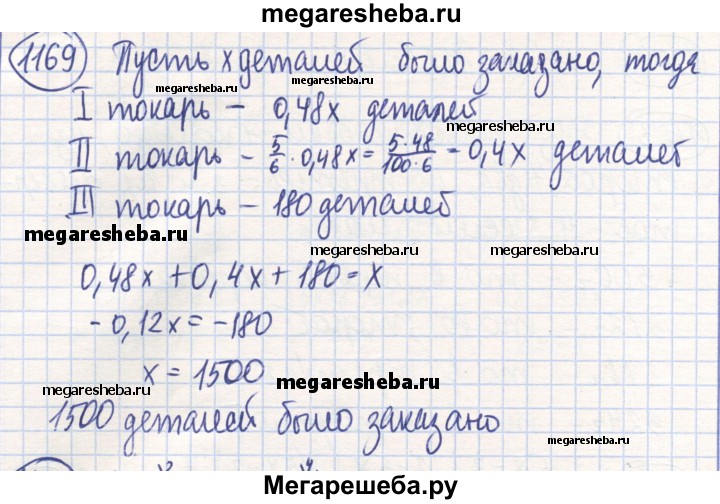 megaresheba.ru
1169 Пусть x деталей было заказано, тогда
megaresheba.ru megaresheba.ru
I токарь – 0,48x деталей
megaresheba.ru
II токарь – 5/6 · 0,48x = 5·48/100·6 – 0,4x деталей
III токарь – 180 деталей
megaresheba.ru
megaresheba.ru megaresheba.ru
0,48x + 0,4x + 180 = x
- 0,12x = -180
x = 1500
megaresheba.ru megaresheba.ru
1500 деталей было заказано
megaresheba.ru
megaresheba.ru
Мегарешеба.ру